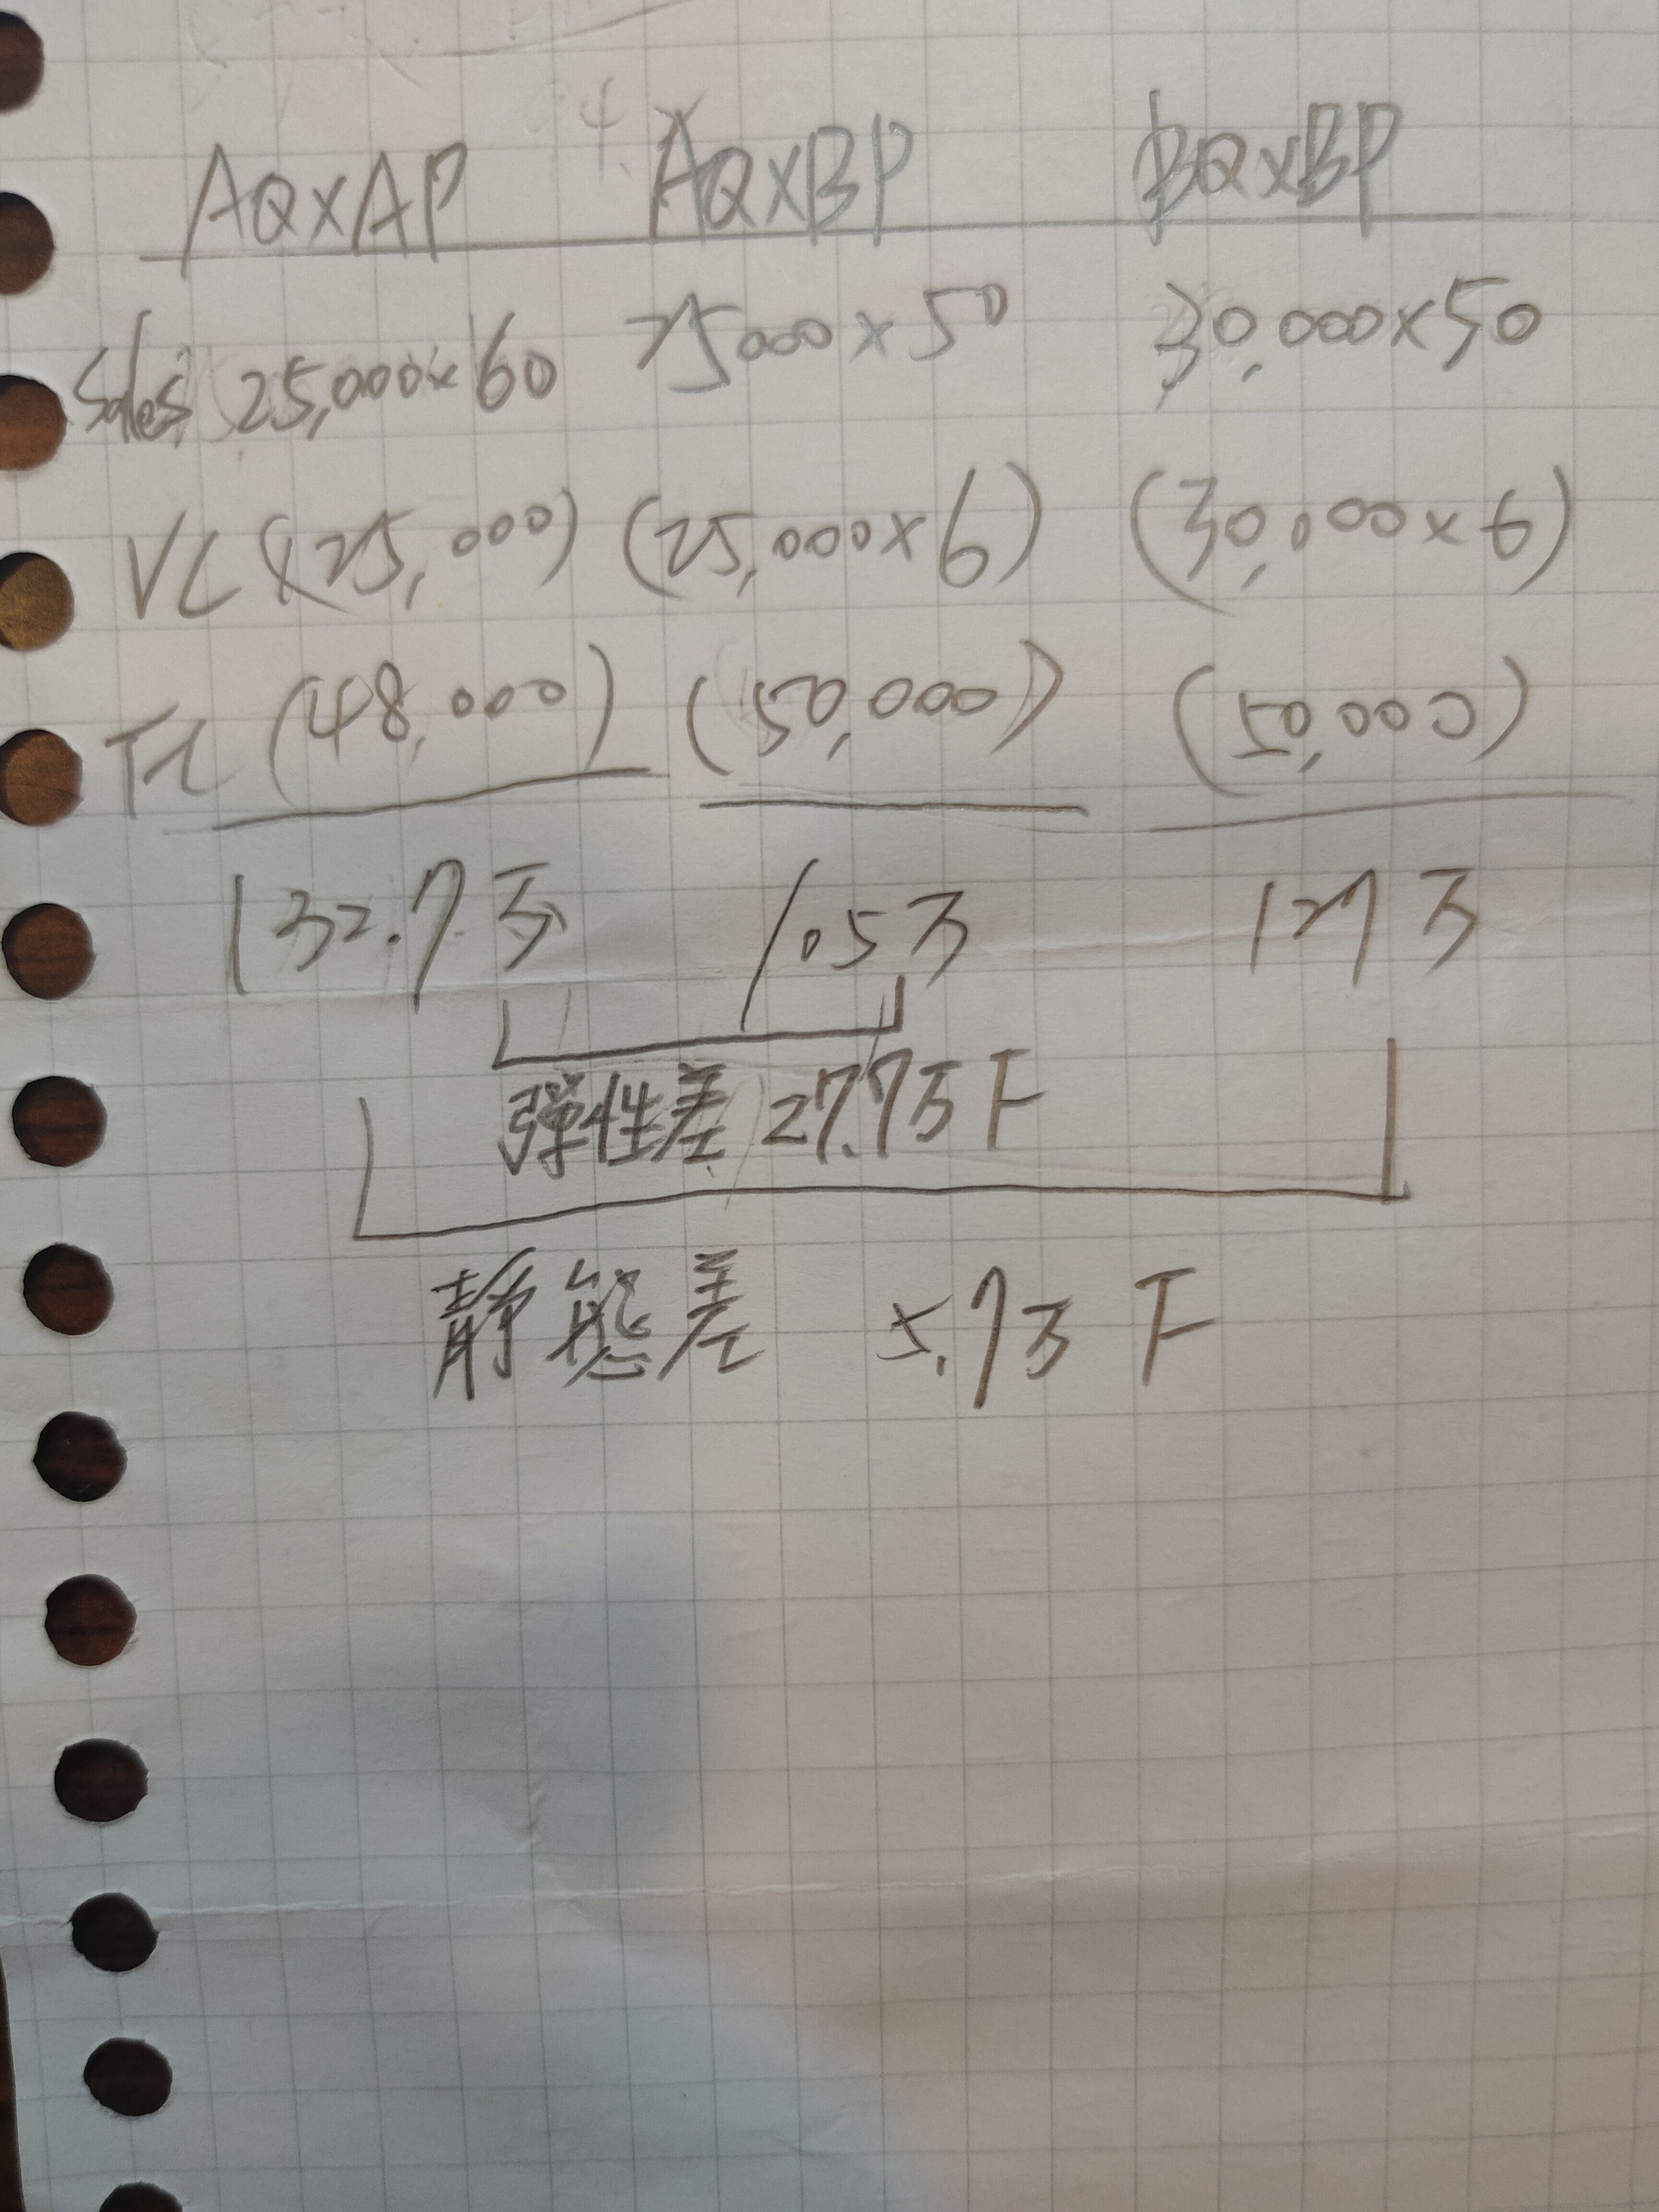 AQxAP AQxBP BQxBP
Sales 25,000x60 25000x50 30,000x50
VC (125,000) (25,000x6) (30,000x6)
FC (48,000) (50,000) (50,000)
132.7万 105万 127万
弹性差 27.7万 F
静態差 5.7万 F